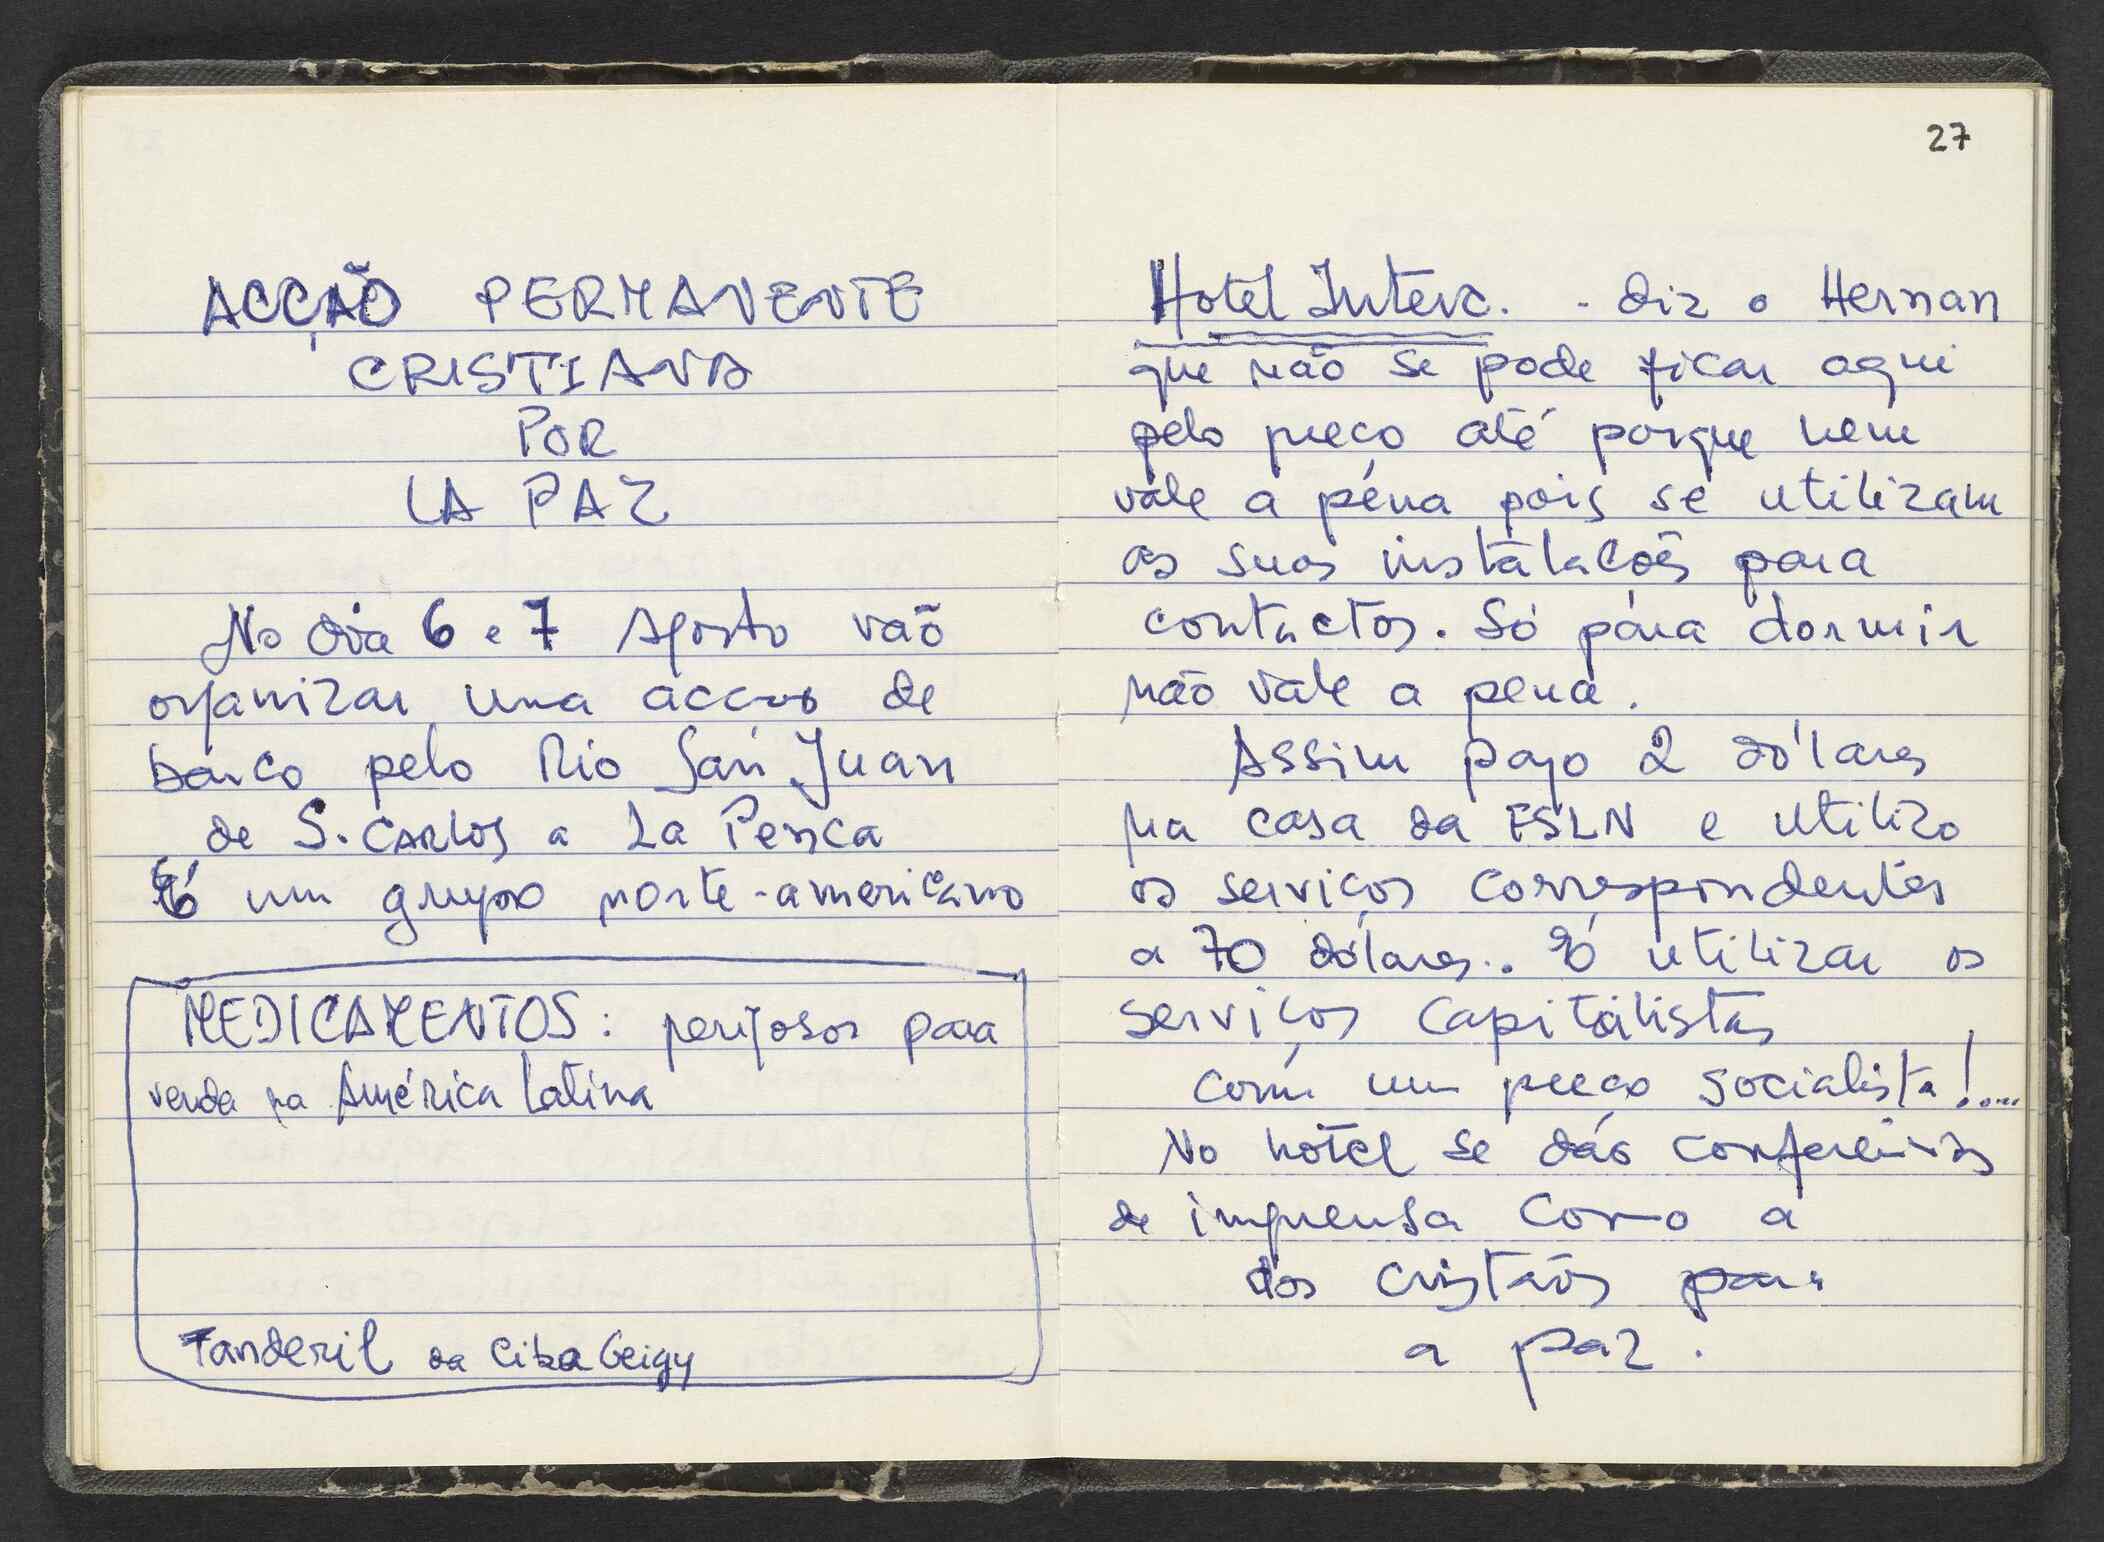 ACCÇÃO PERMANENTE
CRISTIANA
POR
LA PAZ
No dia 6 e 7 Agosto vão
organizar una accao de
barco pelo Rio San Juan
de S. CARLOS a La Penca
É um grupo norte-americano
MEDICAMENTOS: perigosos para
venda na América Latina
Tanderil da Ciba Geigy
27
Hotel Interc. - diz o Hernan
que não se pode ficar aqui
pelo preço até porque nem
vale a péna pois se utilizam
as suas instalações para
contactos. Só pára dormir
não vale a pena.
Assim pago 2 dólares
na casa da FSLN e utilizo
os serviços correspondentes
a 70 dólares.. É utilizar os
serviços capitalistas
com um preço socialista!....
No hotel se dão conferências
de imprensa como a
dos cristãos para
a paz.